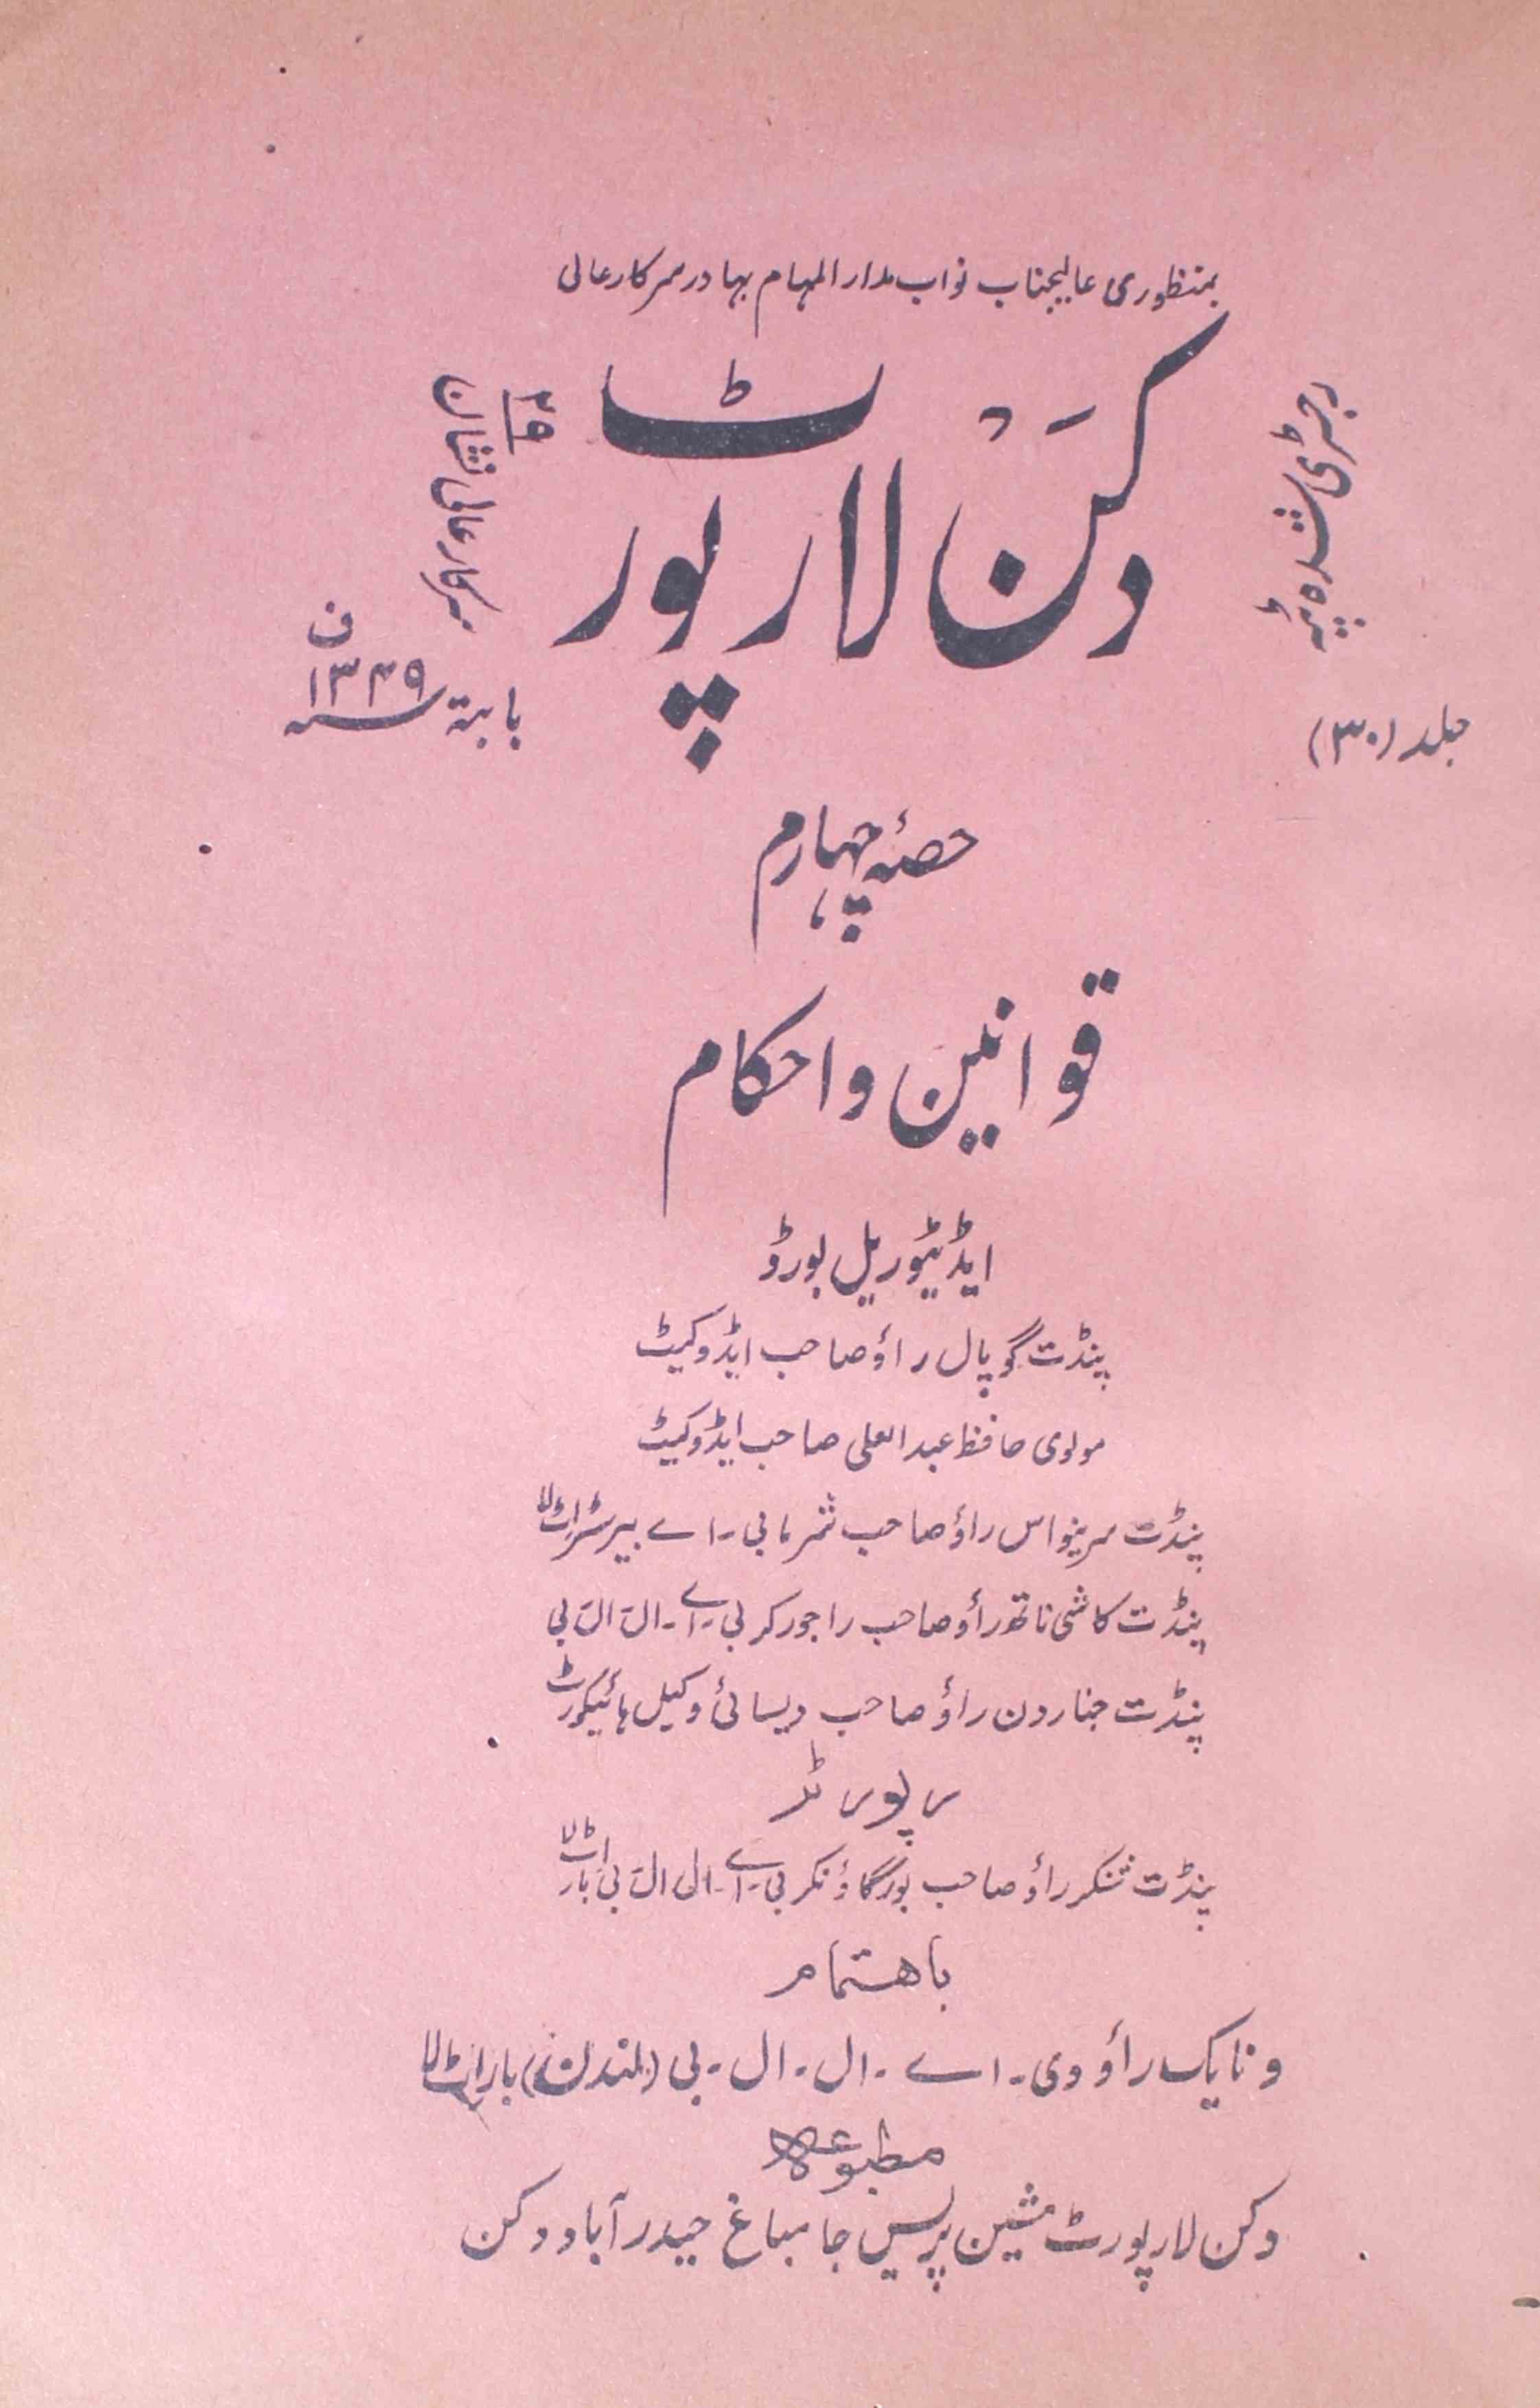 بمنظوری عالیجناب نواب مدار المہام بہادر سرکار عالی
رجسٹری شدہ ٹپہ
دکن لا رپورٹ
سرکار عالی نشان ۲۹
جلد (۳۰)
بابتہ ۱۳۴۹ ف
حصۂ چہارم
قوانین و احکام
ایڈیٹوریل بورڈ
پنڈت گوپال راؤ صاحب ایڈوکیٹ
مولوی حافظ عبد العلی صاحب ایڈوکیٹ
پنڈت سرینواس راؤ صاحب شرما بی۔اے بیرسٹر اٹ لا
پنڈت کاشی ناتھ راؤ صاحب راجورکر بی۔اے۔ال ال بی
پنڈت جناردن راؤ صاحب دیسائی وکیل ہائیکورٹ
رپورٹر
پنڈت شنکر راؤ صاحب بورگاؤنکر بی۔اے۔ال ال بی بار اٹ لا
باھتمام
ونایک راؤ وی۔اے۔ال۔ال۔بی (لندن) بار اٹ لا
مطبوعہ
دکن لا رپورٹ مشین پریس جامباغ حیدرآباد دکن